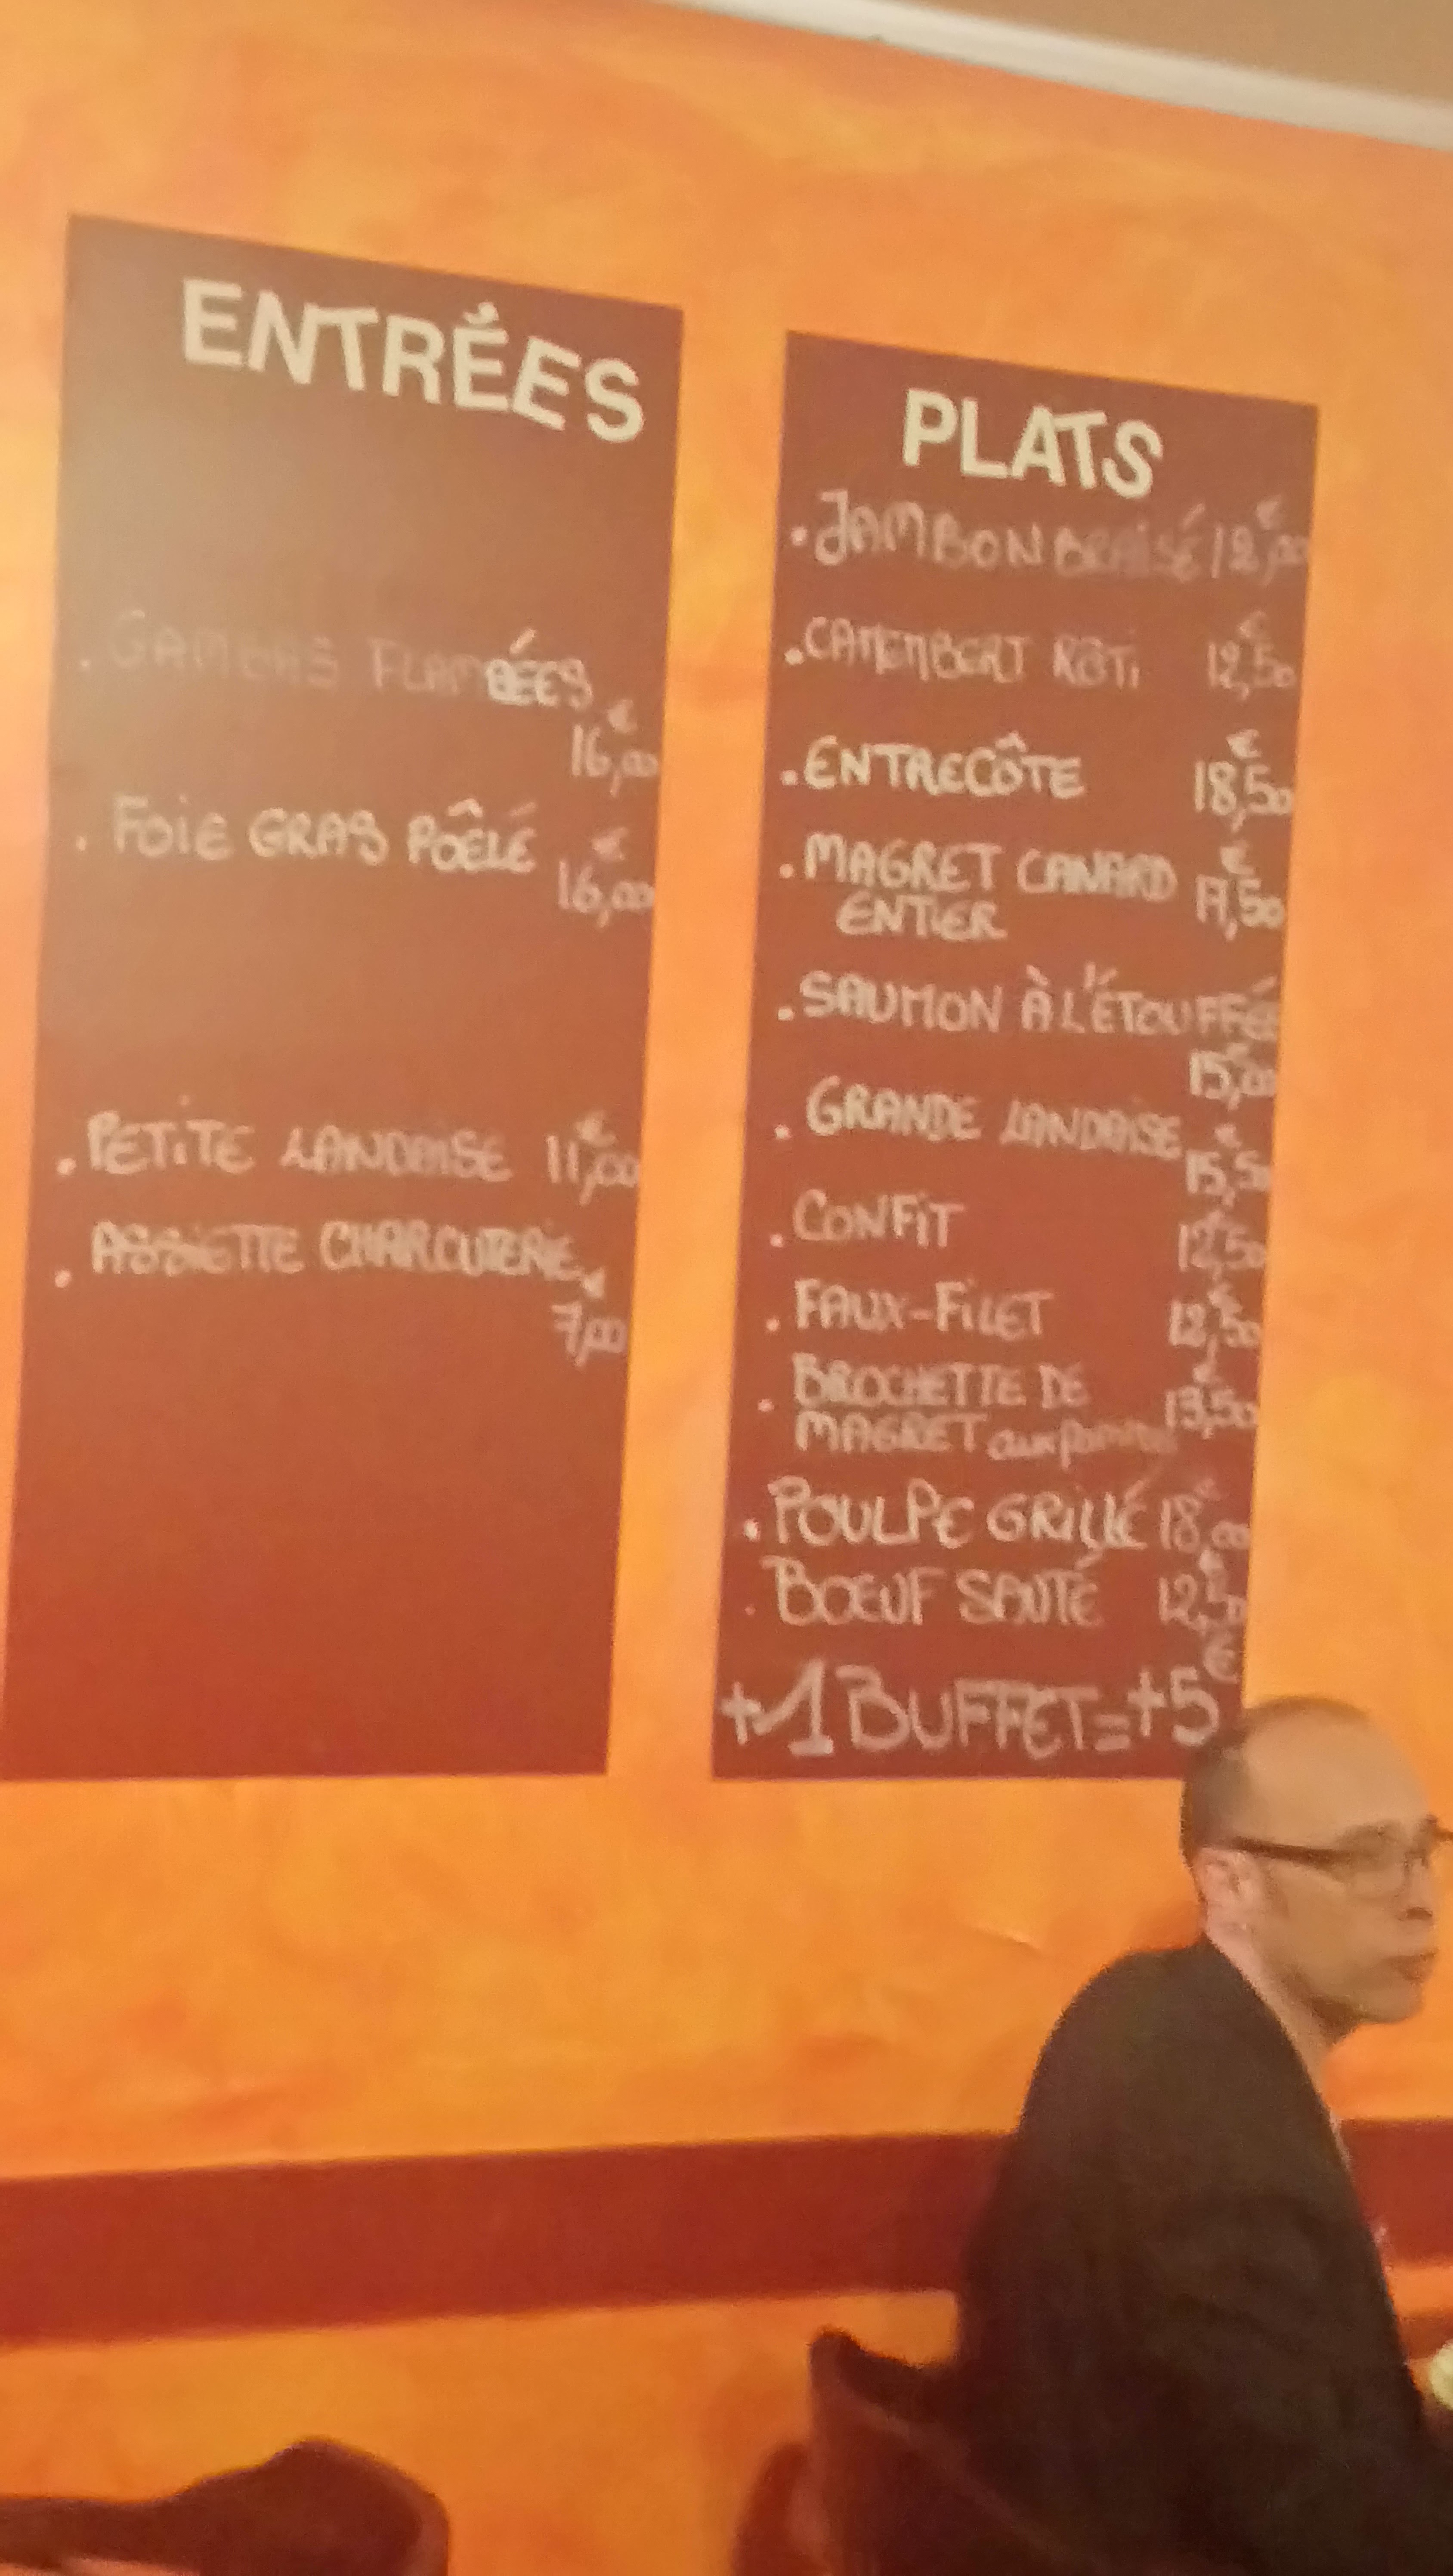 ENTRÉES
. GAMBAS FLAMBÉES
16,00 €
. FOIE GRAS POÊLÉ
16,00 €
. PETITE LANDAISE 11,00 €
. ASSIETTE CHARCUTERIE
7,00 €
PLATS
. JAMBON BRAISÉ 12,00 €
. CAMEMBERT RÔTI 12,50 €
. ENTRECÔTE 18,50 €
. MAGRET CANARD 17,50 €
ENTIER
. SAUMON À L'ÉTOUFFÉE
15,00 €
. GRANDE LANDAISE
15,50 €
. CONFIT 12,50 €
. FAUX-FILET 12,50 €
. BROCHETTE DE 13,50 €
MAGRET aux
. POULPE GRILLÉ 18,00 €
. BOEUF SAUTÉ 12,50 €
+1 BUFFET = +5 €